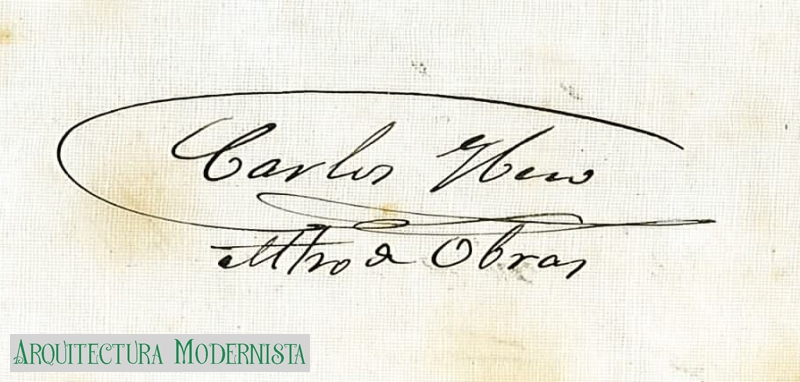 Carlos
Mtro de Obras
ARQUITECTURA MODERNISTA